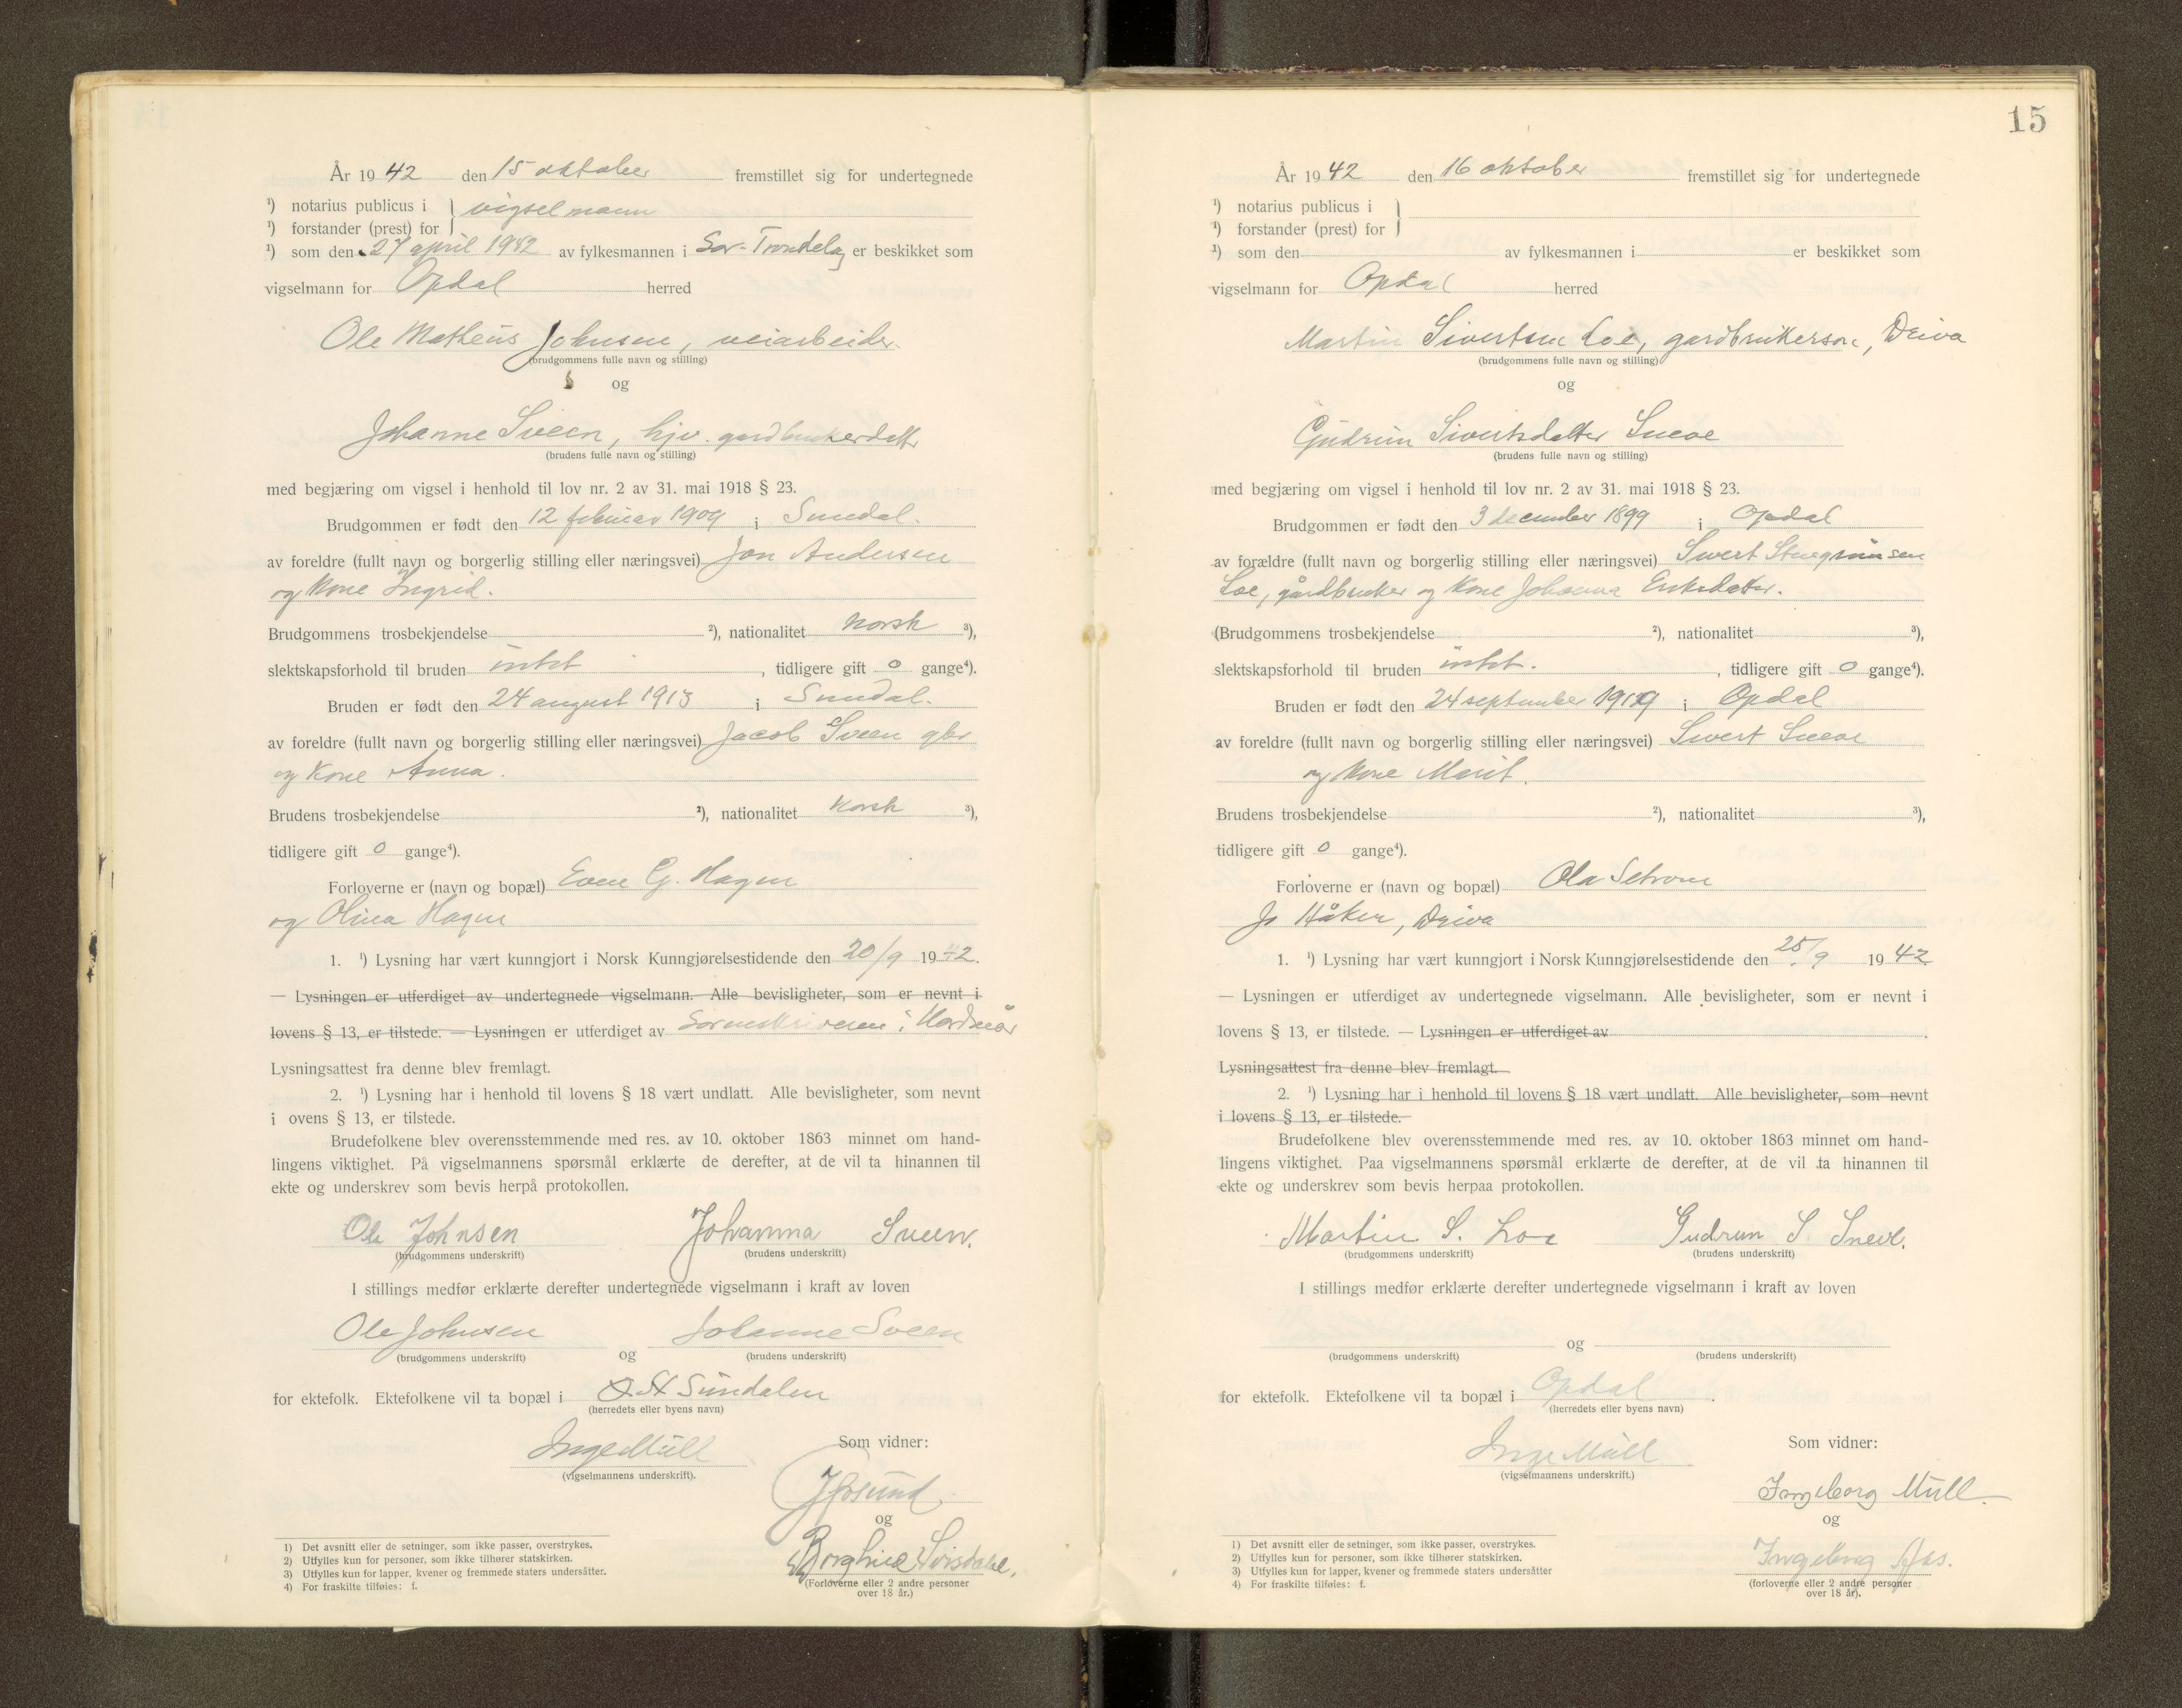 År 1942 den 15 oktober fremstillet sig for undertegnede
¹) notarius publicus i } vigselmann
¹) forstander (prest) for
¹) som den 27 april 1942 av fylkesmannen i Sør-Trøndelag er beskikket som
vigselmann for Opdal herred
Ole Matheus Johnsen, veiarbeider
(brudgommens fulle navn og stilling)
og
Johanne Sveen, hjv. gardbrukerdatter
(brudens fulle navn og stilling)
med begjæring om vigsel i henhold til lov nr. 2 av 31. mai 1918 § 23.
Brudgommen er født den 12 februar 1909 i Sundal.
av foreldre (fullt navn og borgerlig stilling eller næringsvei) Jon Andersen
og kone Ingrid.
Brudgommens trosbekjendelse ²), nationalitet Norsk ³),
slektskapsforhold til bruden intet , tidligere gift 0 gange⁴).
Bruden er født den 24 august 1913 i Sundal.
av foreldre (fullt navn og borgerlig stilling eller næringsvei) Jacob Sveen gbr
og kone Anna.
Brudens trosbekjendelse ²), nationalitet Norsk ³),
tidligere gift 0 gange⁴).
Forloverne er (navn og bopæl) Even G. Hagen
og Olina Hagen
1. ¹) Lysning har vært kunngjort i Norsk Kunngjørelsestidende den 20/9 1942.
— Lysningen er utferdiget av undertegnede vigselmann. Alle bevisligheter, som er nevnt i
lovens § 13, er tilstede. — Lysningen er utferdiget av Sorenskriveren i Nordmør
Lysningsattest fra denne blev fremlagt.
2. ¹) Lysning har i henhold til lovens § 18 vært undlatt. Alle bevisligheter, som nevnt
i ovens § 13, er tilstede.
Brudefolkene blev overensstemmende med res. av 10. oktober 1863 minnet om hand-
lingens viktighet. På vigselmannens spørsmål erklærte de derefter, at de vil ta hinannen til
ekte og underskrev som bevis herpå protokollen.
Ole Johnsen Johanna Sveen.
(brudgommens underskrift) (brudens underskrift)
I stillings medfør erklærte derefter undertegnede vigselmann i kraft av loven
Ole Johnsen og Johanne Sveen
(brudgommens underskrift) (brudens underskrift)
for ektefolk. Ektefolkene vil ta bopæl i Sundalen
(herredets eller byens navn)
Inge Müll
(vigselmannens underskrift).
Som vidner:
og
(Forloverne eller 2 andre personer
over 18 år.)
1) Det avsnitt eller de setninger, som ikke passer, overstrykes.
2) Utfylles kun for personer, som ikke tilhører statskirken.
3) Utfylles kun for lapper, kvener og fremmede staters undersåtter.
4) For fraskilte tilføies: f.
15
År 1942 den 16 oktober fremstillet sig for undertegnede
¹) notarius publicus i }
¹) forstander (prest) for
¹) som den av fylkesmannen i er beskikket som
vigselmann for Opdal herred
Martin Sivertsen Loe, gardbrukersøn, Driva
(brudgommens fulle navn og stilling)
og
Gudrun Sivertsdatter Sneve
(brudens fulle navn og stilling)
med begjæring om vigsel i henhold til lov nr. 2 av 31. mai 1918 § 23.
Brudgommen er født den 3 december 1899 i Opdal
av forældre (fullt navn og borgerlig stilling eller næringsvei) Sivert
Loe, gårdbruker og kone Johanna Eriksdatter.
(Brudgommens trosbekjendelse ²), nationalitet ³),
slektskapsforhold til bruden intet. , tidligere gift 0 gange⁴).
Bruden er født den 24 september 1919 i Opdal
av foreldre (fullt navn og borgerlig stilling eller næringsvei) Sivert Sneve
og kone Marit.
Brudens trosbekjendelse ²), nationalitet ³),
tidligere gift 0 gange⁴).
Forloverne er (navn og bopæl) Ola Setrom
Jo Håker, Driva
1. ¹) Lysning har vært kunngjort i Norsk Kunngjørelsestidende den 25/9 1942
— Lysningen er utferdiget av undertegnede vigselmann. Alle bevisligheter, som er nevnt i
lovens § 13, er tilstede. — Lysningen er utferdiget av .
Lysningsattest fra denne blev fremlagt.
2. ¹) Lysning har i henhold til lovens § 18 vært undlatt. Alle bevisligheter, som nevnt
i lovens § 13, er tilstede.
Brudefolkene blev overensstemmende med res. av 10. oktober 1863 minnet om hand-
lingens viktighet. Paa vigselmannens spørsmål erklærte de derefter, at de vil ta hinannen til
ekte og underskrev som bevis herpaa protokollen.
Martin S. Loe Gudrun S. Sneve.
(brudgommens underskrift) (brudens underskrift)
I stillings medfør erklærte derefter undertegnede vigselmann i kraft av loven
og
(brudgommens underskrift) (brudens underskrift)
for ektefolk. Ektefolkene vil ta bopæl i Opdal .
(herredets eller byens navn)
Inge Müll
(vigselmannens underskrift.)
Som vidner:
Ingeborg Müll.
og
Ingeborg Aas.
(forloverne eller 2 andre personer
over 18 år).
1) Det avsnitt eller de setninger, som ikke passer, overstrykes.
2) Utfylles kun for personer, som ikke tilhører statskirken.
3) Utfylles kun for lapper, kvener og fremmede staters undersåtter
4) For fraskilte tilføies: f.